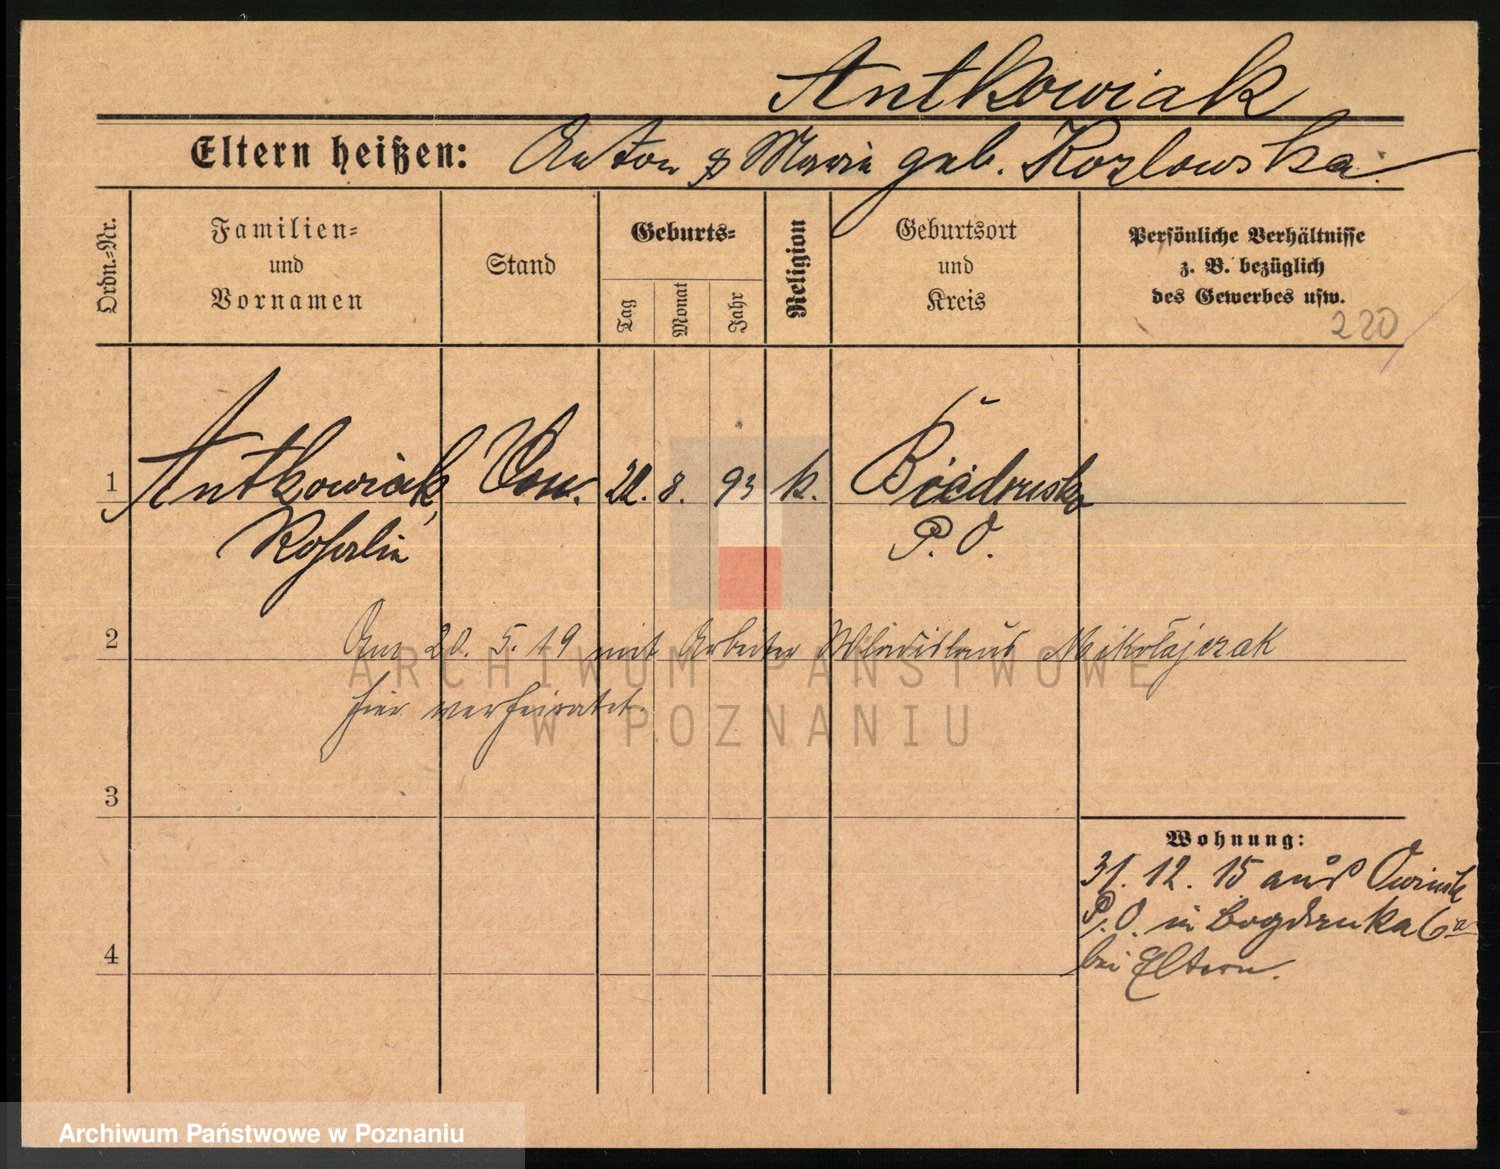 Antkowiak
Eltern heißen: Anton & Marie geb. Kozlowska.
Ordn.-Nr.
Familien-
und
Vornamen
Stand
Geburts-
Tag
Monat
Jahr
Religion
Geburtsort
und
Kreis
Persönliche Verhältnisse
z. B. bezüglich
des Gewerbes usw.
220
1 Antkowiak, 8. 93 k. Biedrusko
Rosalie P. O.
2 Am 20. 5. 19 mit Arbeiter Wladislaus Mikołajczak
hier verheiratet.
3
Wohnung:
31. 12. 15 aus Owinsk
P. O. in Bogdanka 6a
4 bei Eltern.
ARCHIWUM PAŃSTWOWE
W POZNANIU
Archiwum Państwowe w Poznaniu